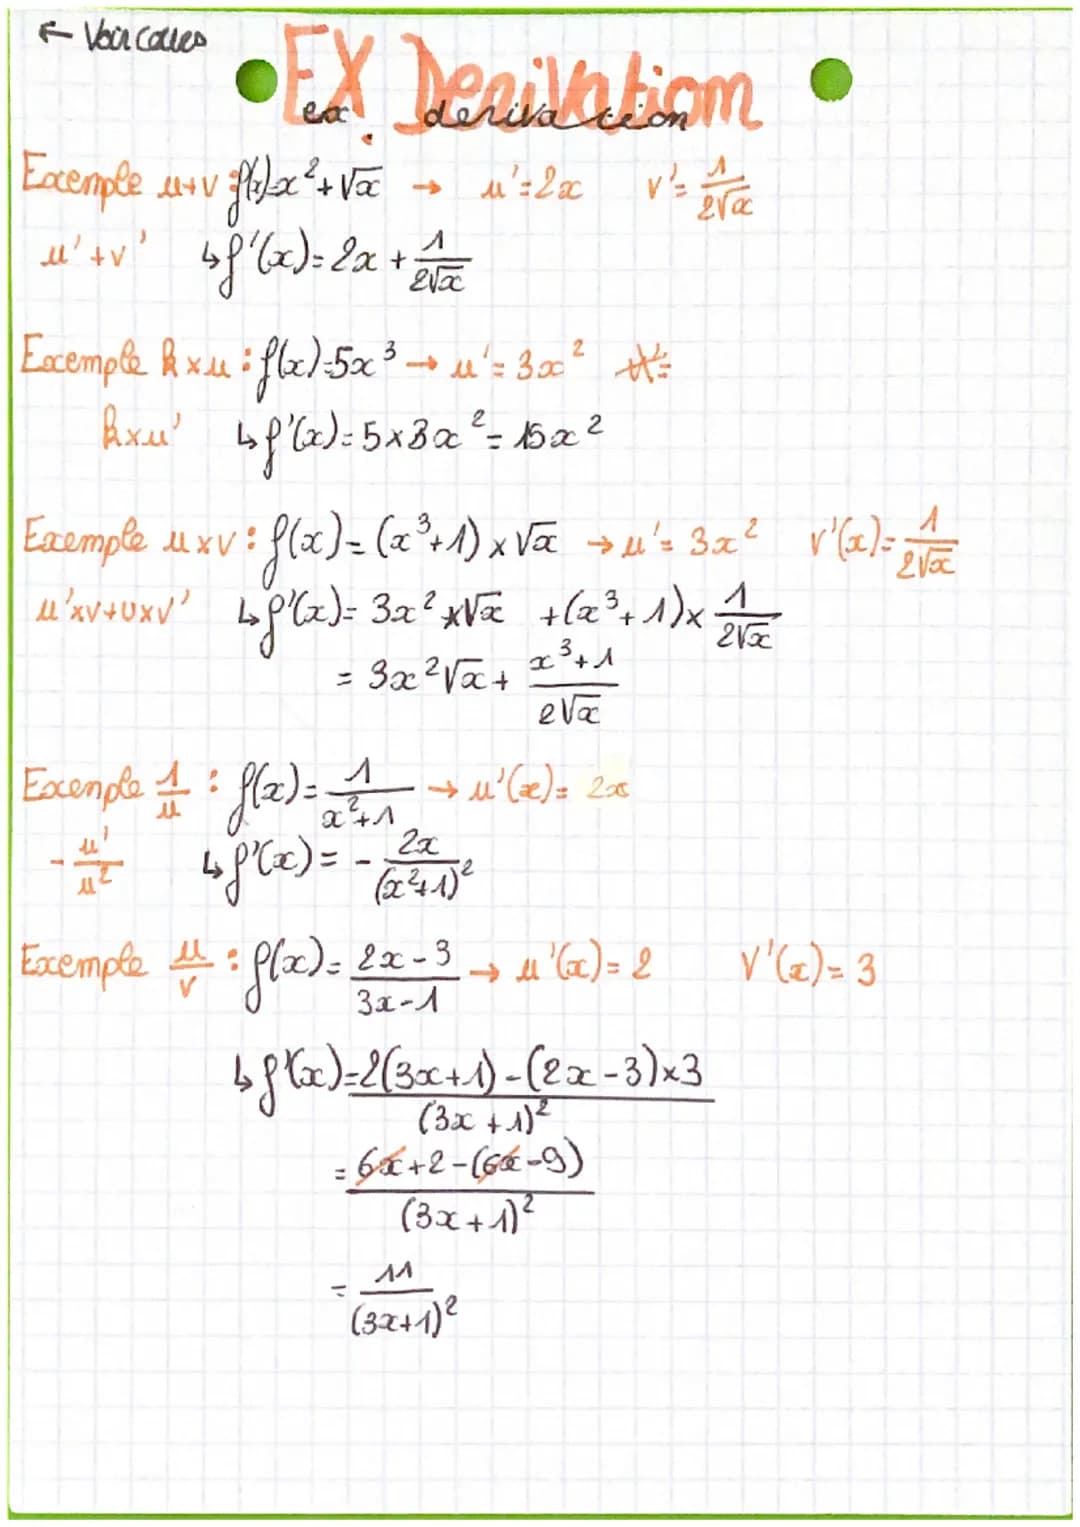 ← Voir cours
EX Derivation
ex derivation
Exemple u+v : f(x)=x²+√x → u'=2x v'=1/(2√x)
u'+v' ↳ f'(x)=2x+1/(2√x)
Exemple k×u : f(x)=5x³ → u'=3x²
k×u' ↳ f'(x)=5×3x²=15x²
Exemple u×v : f(x)=(x³+1)×√x → u'=3x² v'(x)=1/(2√x)
u'×v+u×v' ↳ f'(x)=3x²×√x +(x³+1)×1/(2√x)
=3x²√x+(x³+1)/(2√x)
Exemple 1/u : f(x)=1/(x²+1) → u'(x)=2x
-u'/u² ↳ f'(x)=-2x/(x²+1)²
Exemple u/v : f(x)=(2x-3)/(3x-1) → u'(x)=2 v'(x)=3
↳ f'(x)=(2(3x+1)-(2x-3)×3)/(3x+1)²
=(6x+2-(6x-9))/(3x+1)²
=11/(3x+1)²